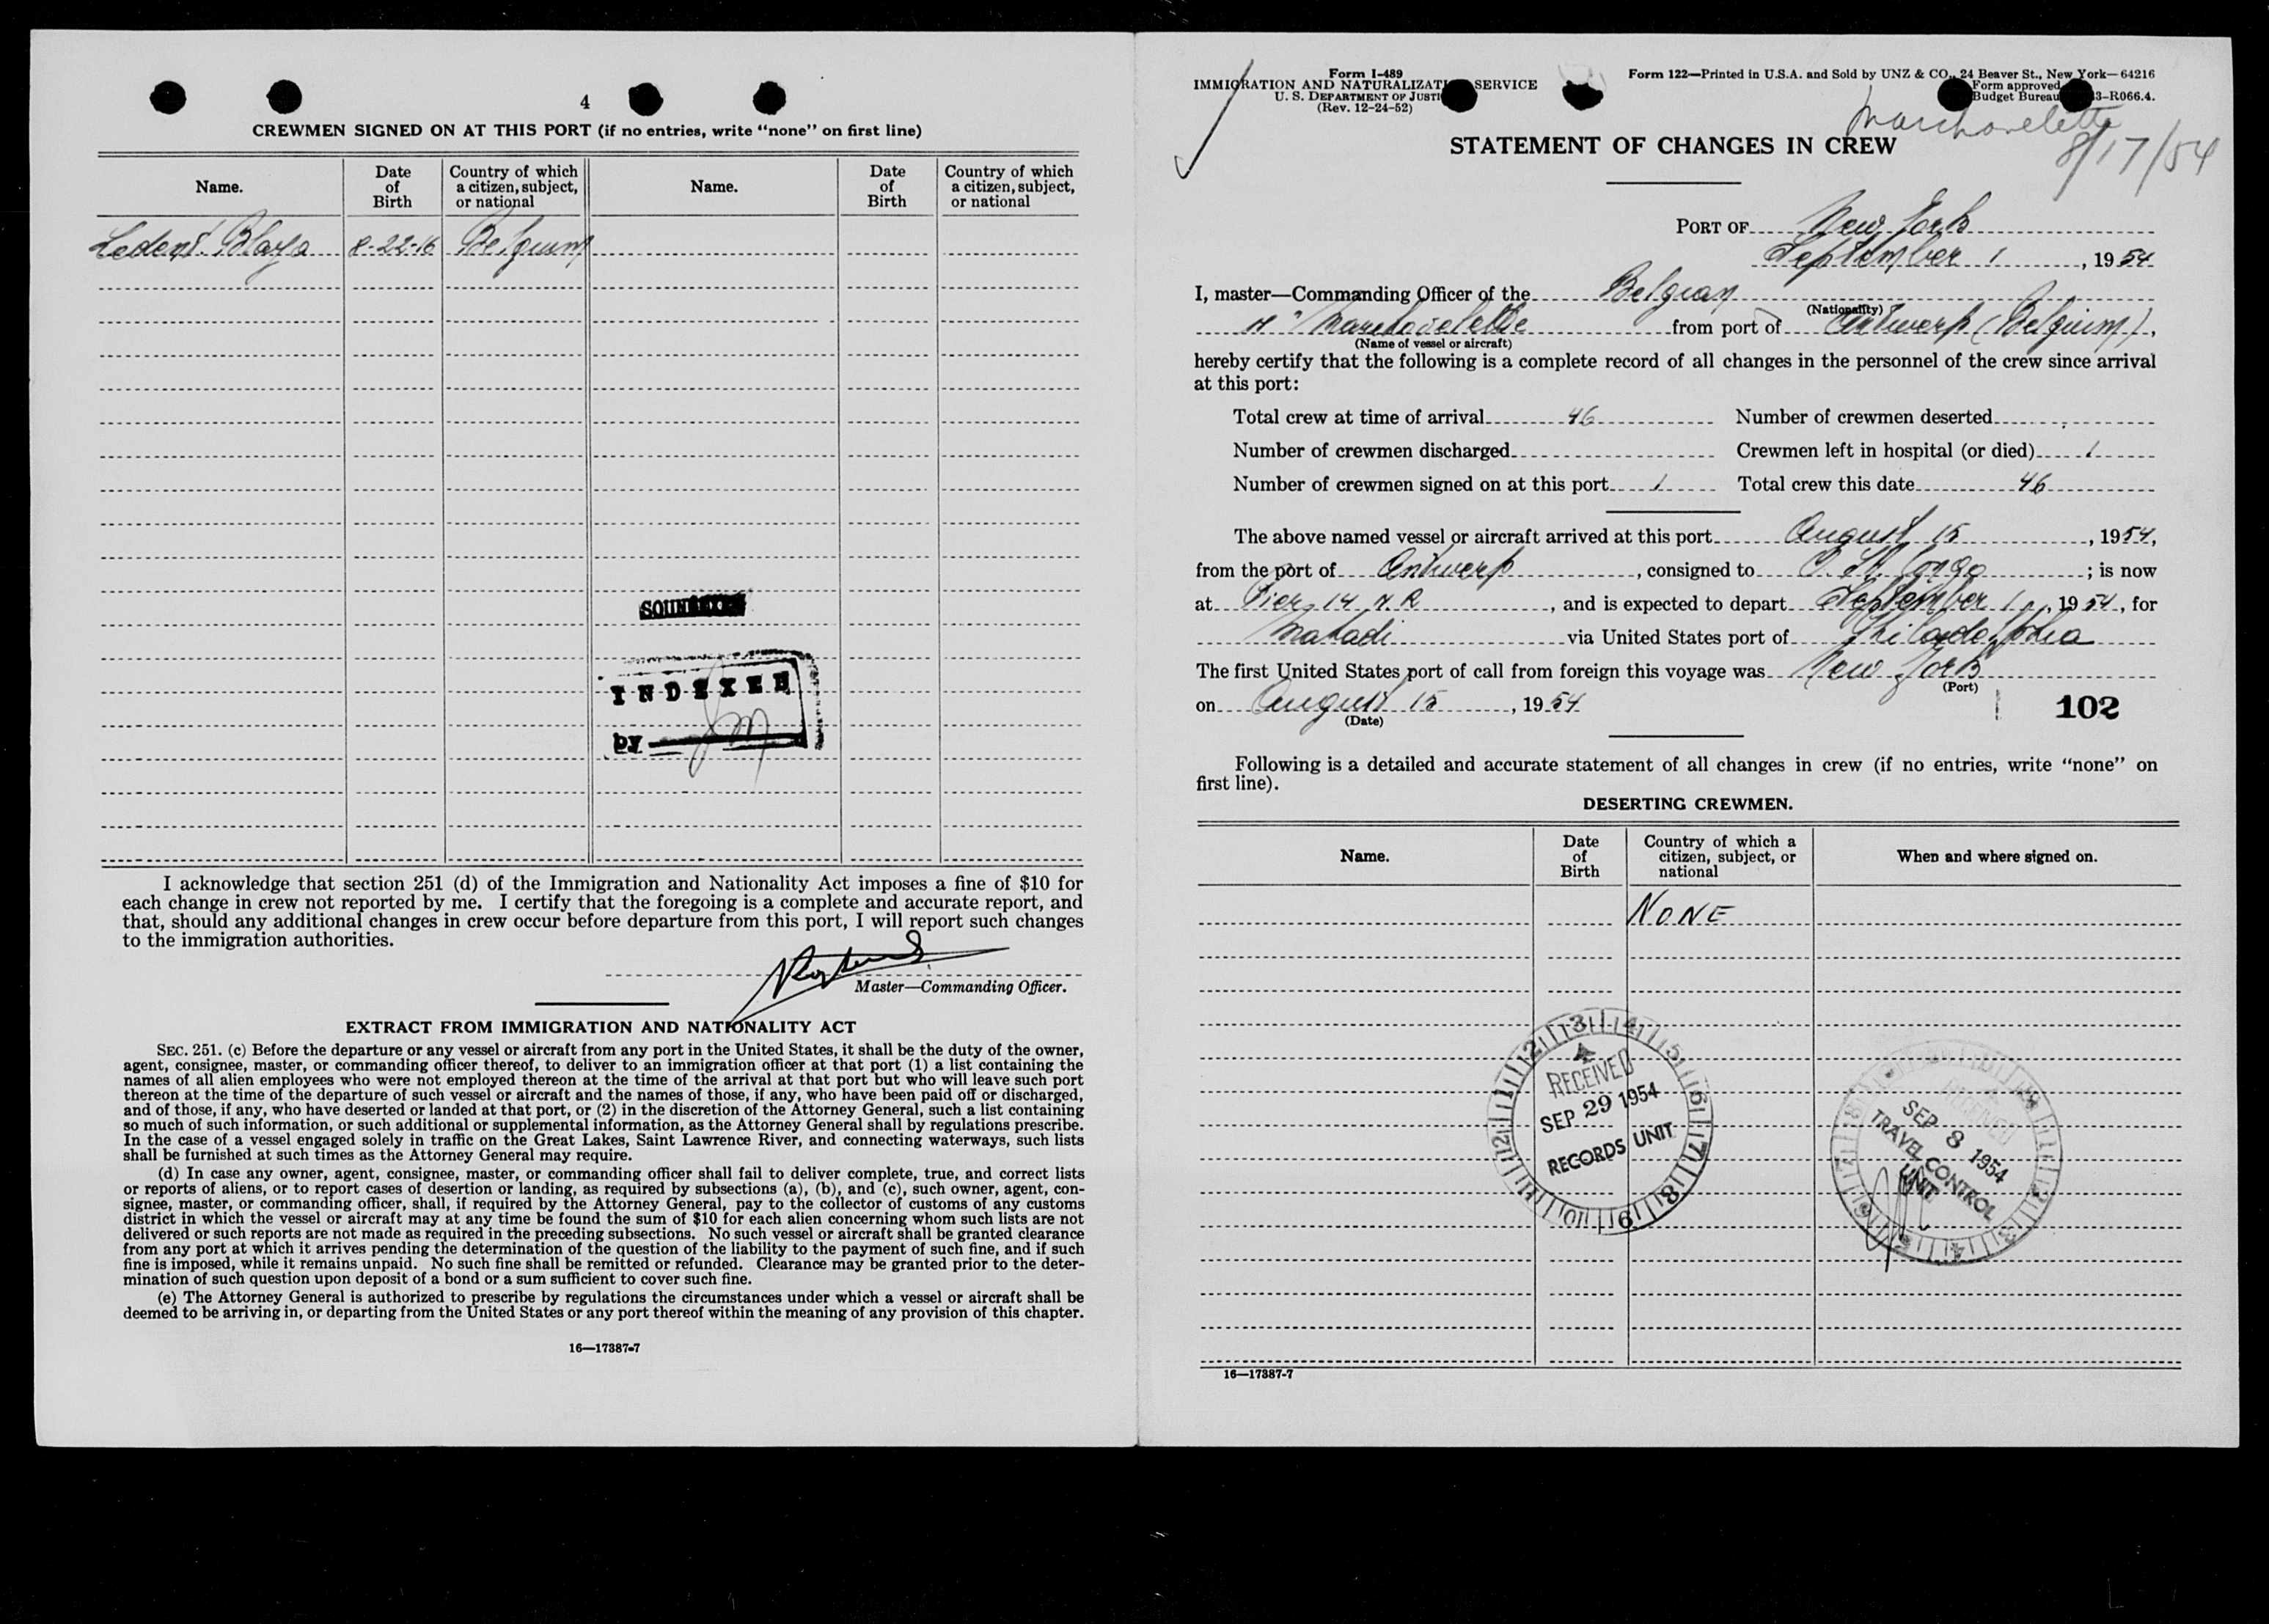 4
CREWMEN SIGNED ON AT THIS PORT (if no entries, write “none” on first line)
Name. Date of Birth Country of which a citizen, subject, or national Name. Date of Birth Country of which a citizen, subject, or national
Ledent 8-22-16 Belgium
INDEXED
by
I acknowledge that section 251 (d) of the Immigration and Nationality Act imposes a fine of $10 for
each change in crew not reported by me. I certify that the foregoing is a complete and accurate report, and
that, should any additional changes in crew occur before departure from this port, I will report such changes
to the immigration authorities.
Master—Commanding Officer.
EXTRACT FROM IMMIGRATION AND NATIONALITY ACT
SEC. 251. (c) Before the departure or any vessel or aircraft from any port in the United States, it shall be the duty of the owner,
agent, consignee, master, or commanding officer thereof, to deliver to an immigration officer at that port (1) a list containing the
names of all alien employees who were not employed thereon at the time of the arrival at that port but who will leave such port
thereon at the time of the departure of such vessel or aircraft and the names of those, if any, who have been paid off or discharged,
and of those, if any, who have deserted or landed at that port, or (2) in the discretion of the Attorney General, such a list containing
so much of such information, or such additional or supplemental information, as the Attorney General shall by regulations prescribe.
In the case of a vessel engaged solely in traffic on the Great Lakes, Saint Lawrence River, and connecting waterways, such lists
shall be furnished at such times as the Attorney General may require.
(d) In case any owner, agent, consignee, master, or commanding officer shall fail to deliver complete, true, and correct lists
or reports of aliens, or to report cases of desertion or landing, as required by subsections (a), (b), and (c), such owner, agent, con-
signee, master, or commanding officer, shall, if required by the Attorney General, pay to the collector of customs of any customs
district in which the vessel or aircraft may at any time be found the sum of $10 for each alien concerning whom such lists are not
delivered or such reports are not made as required in the preceding subsections. No such vessel or aircraft shall be granted clearance
from any port at which it arrives pending the determination of the question of the liability to the payment of such fine, and if such
fine is imposed, while it remains unpaid. No such fine shall be remitted or refunded. Clearance may be granted prior to the deter-
mination of such question upon deposit of a bond or a sum sufficient to cover such fine.
(e) The Attorney General is authorized to prescribe by regulations the circumstances under which a vessel or aircraft shall be
deemed to be arriving in, or departing from the United States or any port thereof within the meaning of any provision of this chapter.
16—17387-7
Form I-489
IMMIGRATION AND NATURALIZATI SERVICE
U. S. DEPARTMENT OF JUSTI
(Rev. 12-24-52)
Form 122—Printed in U.S.A. and Sold by UNZ & CO., 24 Beaver St., New York—64216
Form approved
Budget Bureau 3-R066.4.
Marchovelette
8/17/54
STATEMENT OF CHANGES IN CREW
PORT OF New York
September 1, 1954
I, master—Commanding Officer of the Belgian
(Nationality)
Marchovelette from port of Antwerp (Belgium),
(Name of vessel or aircraft)
hereby certify that the following is a complete record of all changes in the personnel of the crew since arrival
at this port:
Total crew at time of arrival 46 Number of crewmen deserted
Number of crewmen discharged Crewmen left in hospital (or died) 1
Number of crewmen signed on at this port 1 Total crew this date 46
The above named vessel or aircraft arrived at this port August 15, 1954,
from the port of Antwerp, consigned to Congo; is now
at Pier 14 N R, and is expected to depart September 1, 1954, for
Matadi via United States port of Philadelphia
The first United States port of call from foreign this voyage was New York
(Port)
on August 15, 1954
(Date)
102
Following is a detailed and accurate statement of all changes in crew (if no entries, write “none” on
first line).
DESERTING CREWMEN.
Name. Date of Birth Country of which a citizen, subject, or national When and where signed on.
NONE
RECEIVED
SEP 29 1954
RECORDS UNIT
RECEIVED
SEP 8 1954
TRAVEL CONTROL
UNIT
16—17387-7